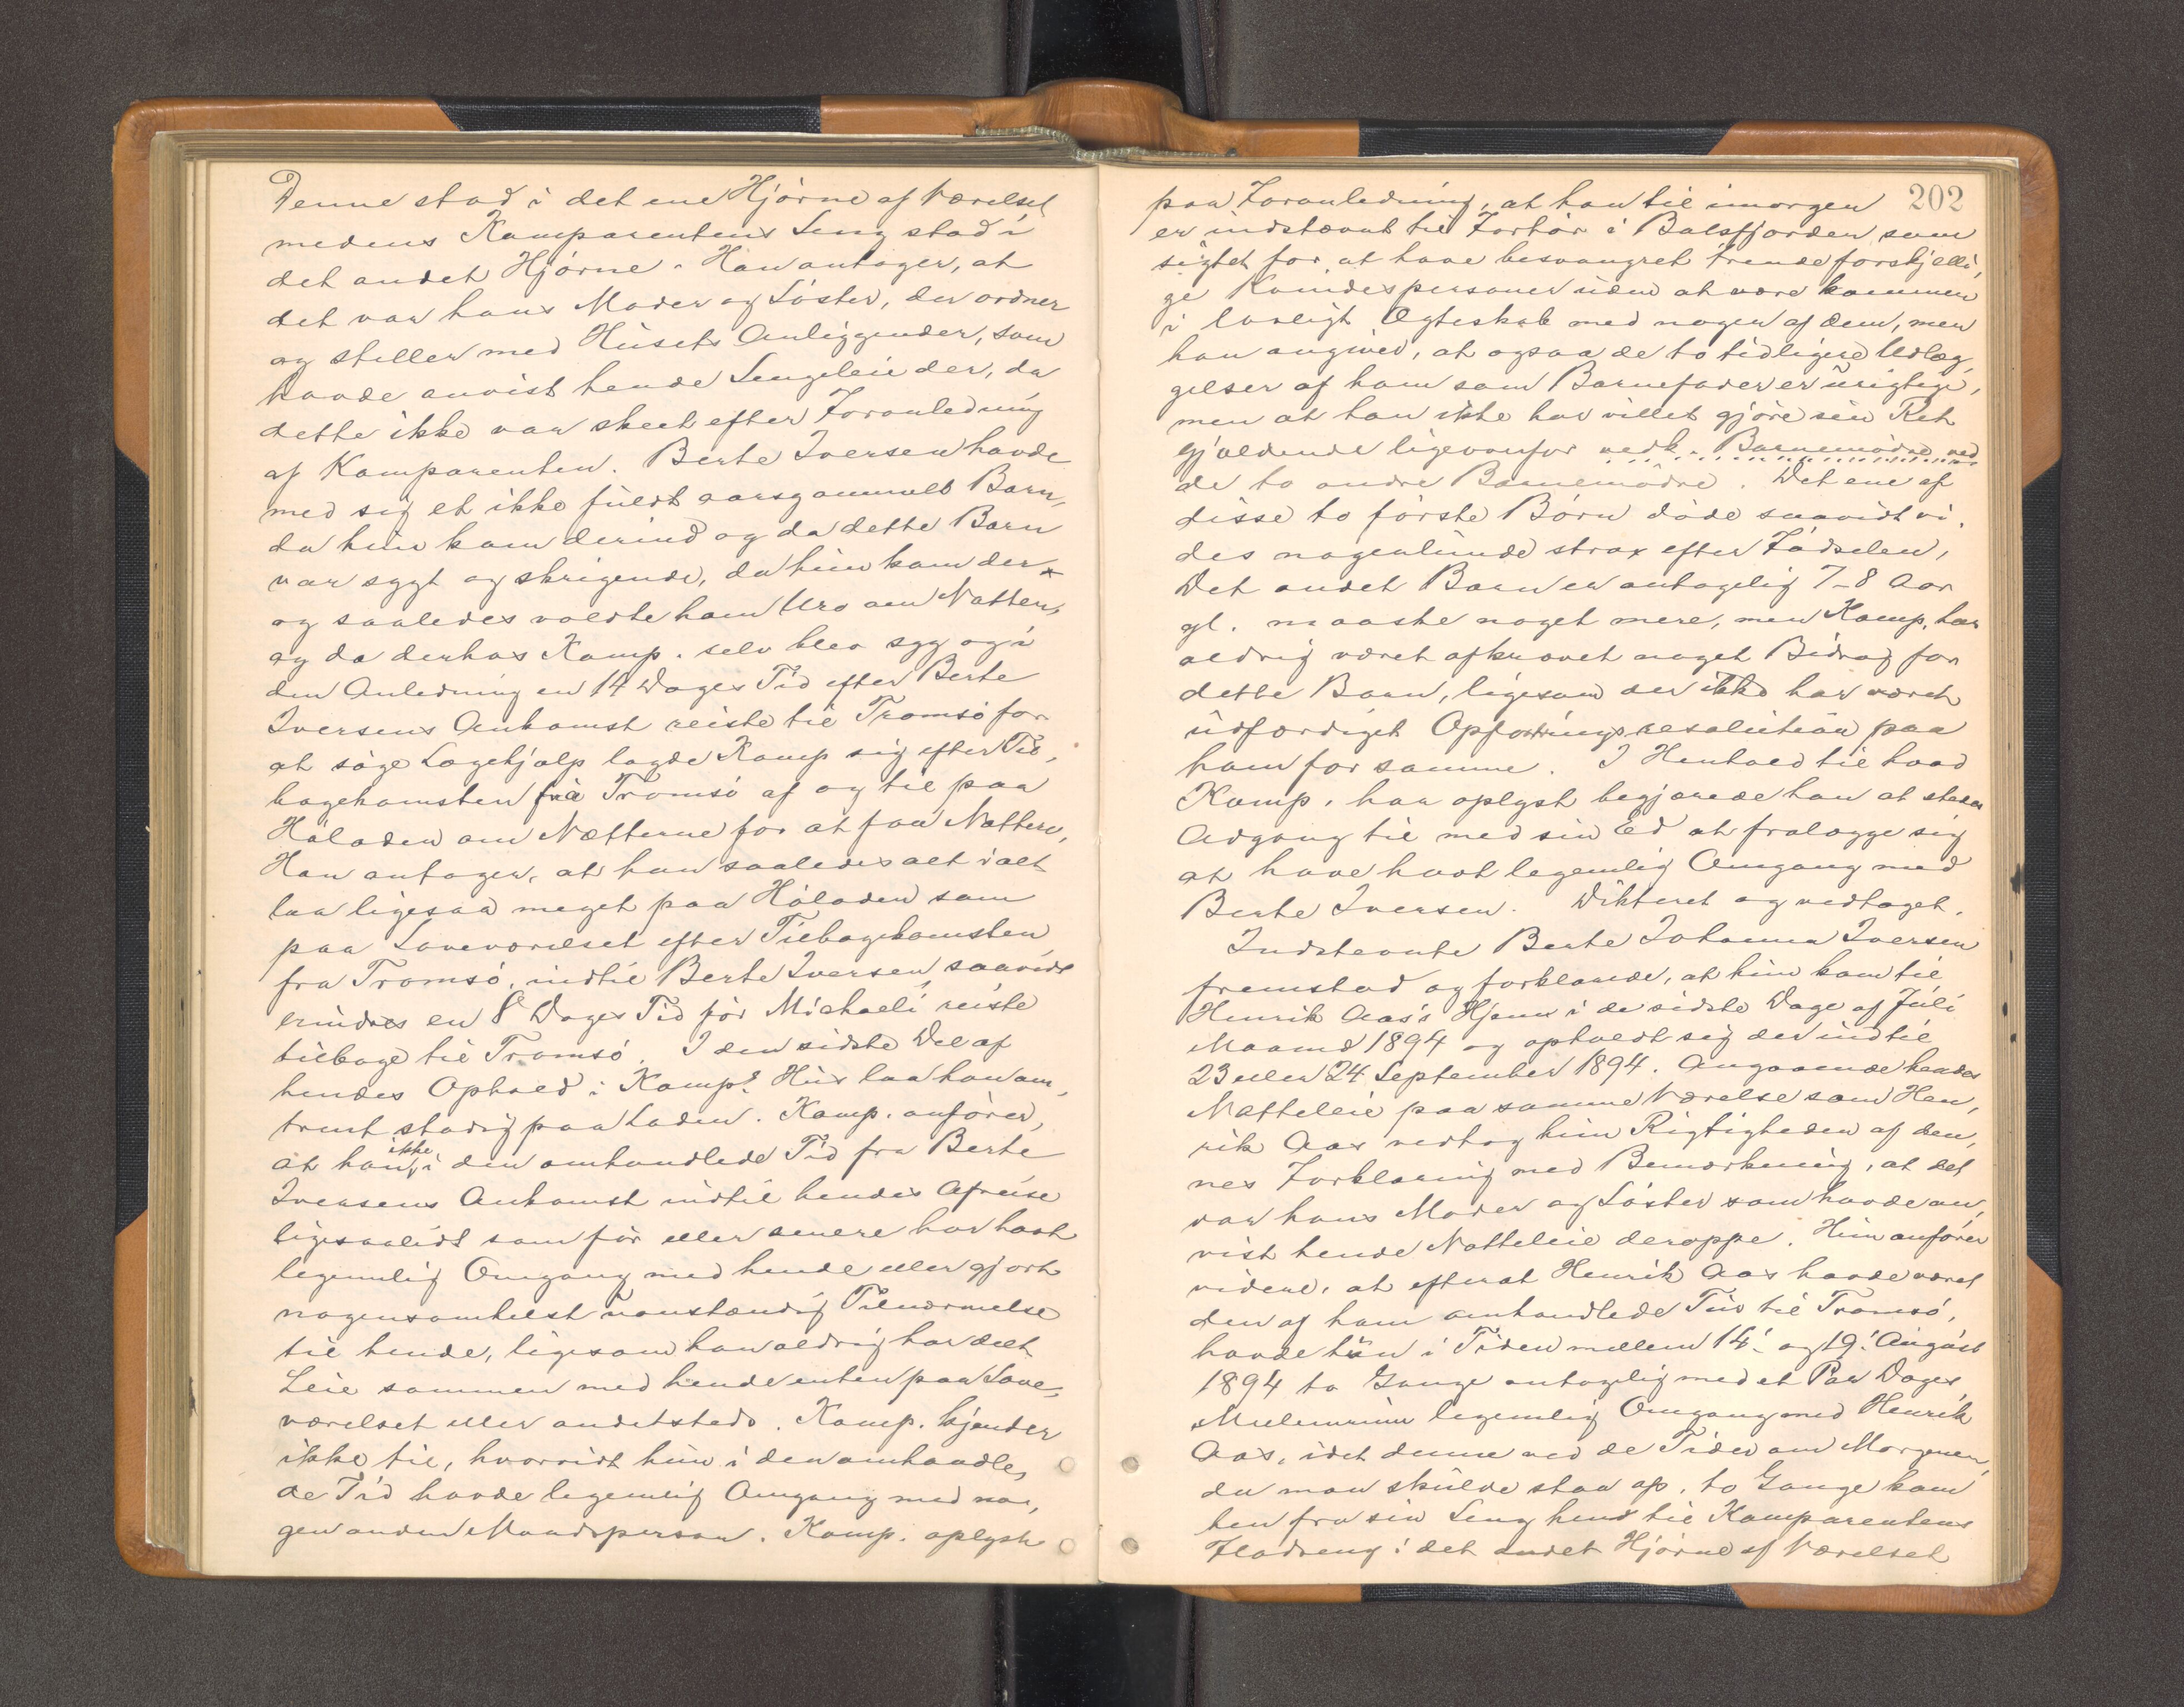 Denne stod i det ene Hjørne af Værelset
medens Komparentens Seng stod i
det andet Hjørne. Han antager, at
det var hans Moder og Söster, der ordner
og steller med Husets Anliggender, som
havde anvist hende Sengeleie der, da
dette ikke var skeet efter Foranledning
af Komparenten. Berte Iversen havde
med sig et ikke fuldt aarsgammelt Barn,
da hun kom derind og da dette Barn
var sygt og skrigende, da hun kom der
og saaledes voldte ham Uro om Natten,
og da derhos Komp. selv blev syg og i
den Anledning en 14 Dages Tid efter Berte
Iversens Ankomst reiste til Tromsö for
at söge Lægehjælp lagde Komp sig efter Til,
bagekomsten fra Tromsö af og til paa
Höladen om Nætterne for at faa Nattero,
Han antager, at han saaledes alt ialt
laa ligesaa meget paa Höladen som
paa Soveværelset efter Tilbagekomsten
fra Tromsö, indtil Berte Iversen, saavidt
erindres en 8 Dages Tid för Michaeli reiste
tilbage til Tromsö. I den sidste Del af
hendes Ophold i Komp.s Hus laa han om,
trent stadig paa Laden. Komp. anförer,
at han ikke i den omhandlede Tid fra Berte
Iversens Ankomst indtil hendes Afreise
ligesaalidt som för eller senere har havt
legemlig Omgang med hende eller gjort
nogensomhelst uanstændig Tilnærmelse
til hende, ligesom han aldrig har delt
Leie sammen med hende enten paa Sove,
værelset eller andetsteds. Komp. kjender
ikke til, hvorvidt hun i den omhandle,
de Tid havde legemlig Omgang med no,
gen anden Mandsperson. Komp. oplyste
202
paa Foranledning, at han til imorgen
er indstævnt til Forhör i Balsfjorden som
sigtet for at have besvangret trende forskjelli,
ge Kvindespersoner uden at være kommen
i lovligt Ægteskab med nogen af dem, men
han angiver, at ogsaa de to tidligere Udlæg,
gelser af ham som Barnefader er urigtige,
men at han ikke har villet gjöre sin Ret
gjældende ligeoverfor vedk. Barnemödre ved
de to andre Barnemödre. Det ene af
disse to förste Börn döde saavidt vi,
des nogenlunde strax efter Födselen,
Det andet Barn er antagelig 7-8 Aar
gl. maaske noget mere, men Komp. har
aldrig været afkrævet noget Bidrag for
dette Barn, ligesom der ikke har været
udfærdiget Opfostringsresolution paa
ham for samme. I Henhold til hvad
Komp. har oplyst begjærede han at stedes
Adgang til med sin Ed at fralægge sig
at have havt legemlig Omgang med
Berte Iversen. Dikteret og vedtaget.
Indstevnte Berte Johanna Iversen
fremstod og forklarede, at hun kom til
Henrik Aas's Hjem i de sidste Dage af Juli
Maaned 1894 og opholdt sig der indtil
23 eller 24 September 1894. Angaaende hendes
Natteleie paa samme Værelse som Hen,
rik Aas vedtog hun Rigtigheden af den,
nes Forklaring med Bemærkning, at det
var hans Moder og Söster som havde an,
vist hende Natteleie deroppe. Hun anförer
videre, at efterat Henrik Aas havde været
den af ham omhandlede Tur til Tromsö,
havde hun i Tiden mellem 14. og 19. August
1894 to Gange antagelig med et Par Dages
Mellemrum legemlig Omgang med Henrik
Aas, idet denne ved de Tider om Morgenen,
da man skulde staa op, to Gange kom
hen fra sin Seng hen til Komparentens
Fladseng i det andet Hjörne af Værelset